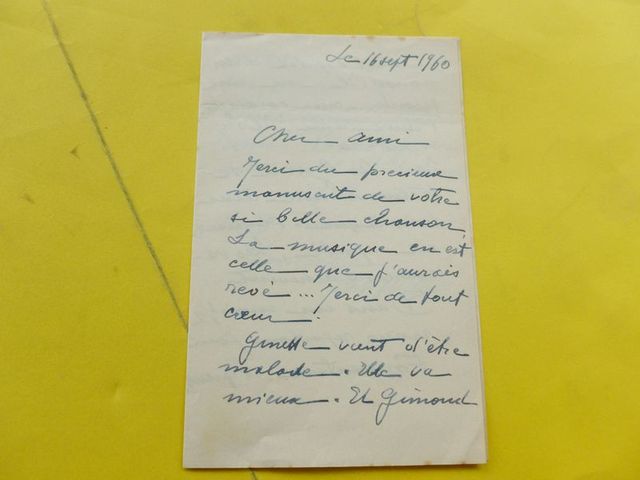 Le 16 sept 1960
Cher ami
Merci du precieux
manuscrit de votre
si belle chanson,
La musique en est
celle que j'aurais
revé ... Merci de tout
cœur.
Ginette vient d'être
malade. Elle va
mieux. Et Gimond